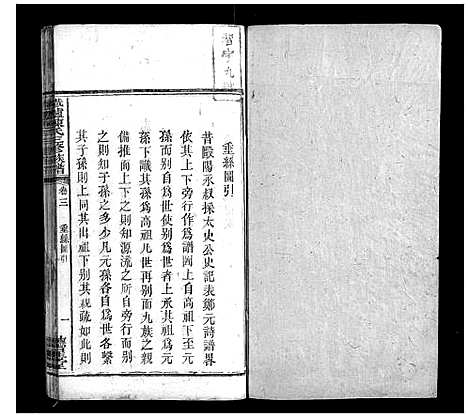 垂絲圖引
昔歐陽永叔採太史公史記表鄭元詩譜畧
依其上下旁行作爲譜圖上自高祖下至元
孫而別自爲世使別爲世者上承其祖爲元
孫下識其孫爲高祖凡世再別而九族之親
備推而上下之則知源流之所自旁行而別
之則知子孫之多少凡元孫別而各爲世者各繫
其子孫則上同其出祖下別其親疏如此則
陳氏三修族譜
卷三
垂絲圖引
一